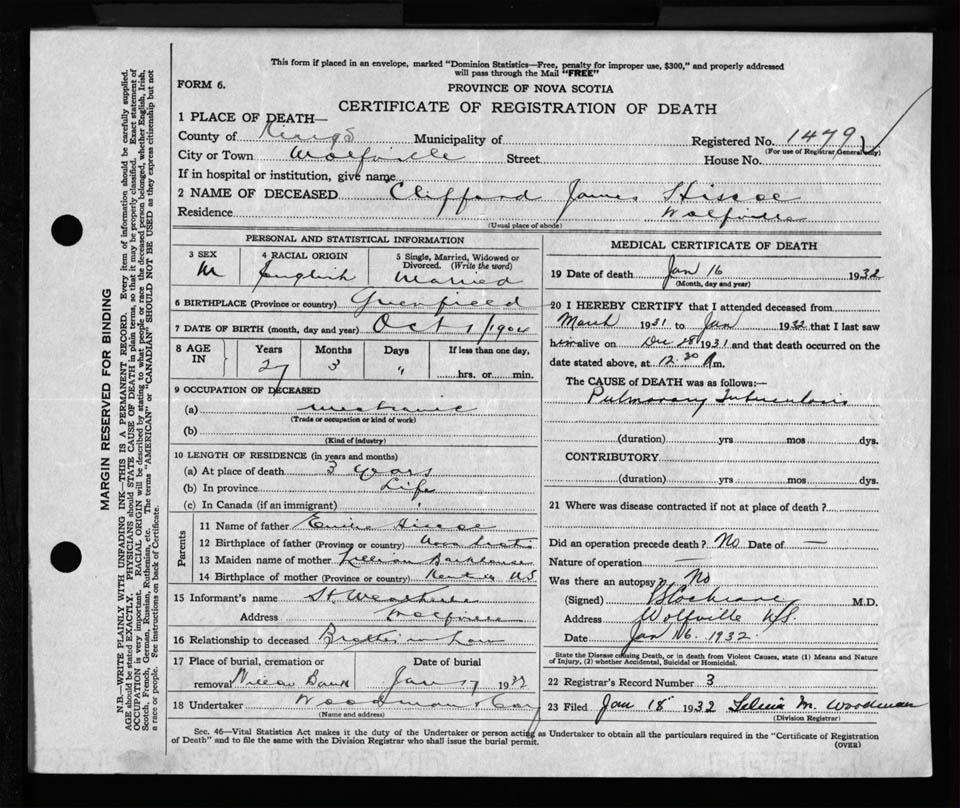 This form if placed in an envelope, marked "Dominion Statistics—Free, penalty for improper use, $300," and properly addressed
will pass through the Mail "FREE"
FORM 6.
PROVINCE OF NOVA SCOTIA
CERTIFICATE OF REGISTRATION OF DEATH
1 PLACE OF DEATH—
County of Kings Municipality of Registered No. 1479
(For use of Registrar General only)
City or Town Wolfville Street House No.
If in hospital or institution, give name
2 NAME OF DECEASED Clifford James Hiscoe
Residence Wolfville
(Usual place of abode)
PERSONAL AND STATISTICAL INFORMATION
3 SEX M
4 RACIAL ORIGIN English
5 Single, Married, Widowed or Divorced. (Write the word) Married
6 BIRTHPLACE (Province or country) Greenfield
7 DATE OF BIRTH (month, day and year) Oct 1/1904
8 AGE IN Years 27 Months 3 Days " If less than one day, hrs. or min.
9 OCCUPATION OF DECEASED
(a) mechanic
(Trade or occupation or kind of work)
(b)
(Kind of industry)
10 LENGTH OF RESIDENCE (in years and months)
(a) At place of death 3 years
(b) In province Life
(c) In Canada (if an immigrant)
Parents
11 Name of father Hiscoe
12 Birthplace of father (Province or country) Nova Scotia
13 Maiden name of mother Lillian
14 Birthplace of mother (Province or country) U.S.
15 Informant's name
Address Wolfville
16 Relationship to deceased Brother in Law
17 Place of burial, cremation or removal Willow Bank
Date of burial Jan 17 1932
18 Undertaker Woodman & Co
(Name and address)
MEDICAL CERTIFICATE OF DEATH
19 Date of death Jan 16 1932
(Month, day and year)
20 I HEREBY CERTIFY that I attended deceased from
March 1931 to Jan 1932 that I last saw
him alive on Dec 28 1931 and that death occurred on the
date stated above, at 12.30 A m.
The CAUSE of DEATH was as follows:—
Pulmonary Tuberculosis
(duration) yrs mos dys.
CONTRIBUTORY
(duration) yrs mos dys.
21 Where was disease contracted if not at place of death?
Did an operation precede death? No Date of —
Nature of operation —
Was there an autopsy? No
(Signed) Cochrane M.D.
Address Wolfville N.S.
Date Jan 16. 1932
State the Disease causing Death, or in death from Violent Causes, state (1) Means and Nature
of Injury, (2) whether Accidental, Suicidal or Homicidal.
22 Registrar's Record Number 3
23 Filed Jan 18 1932 M. Woodman
(Division Registrar)
Sec. 46—Vital Statistics Act makes it the duty of the Undertaker or person acting as Undertaker to obtain all the particulars required in the "Certificate of Registration
of Death" and to file the same with the Division Registrar who shall issue the burial permit.
(OVER)
MARGIN RESERVED FOR BINDING
N.B.—WRITE PLAINLY WITH UNFADING INK—THIS IS A PERMANENT RECORD. Every item of information should be carefully supplied.
AGE should be stated EXACTLY. PHYSICIANS should STATE CAUSE OF DEATH in plain terms, so that it may be properly classified. Exact statement of
OCCUPATION is very important. RACIAL ORIGIN will be described by stating to what people or race the deceased person belonged, whether English, Irish,
Scotch, French, German, Russian, Ruthenian, etc. The terms "AMERICAN" or "CANADIAN" SHOULD NOT BE USED as they express citizenship but not
a race or people. See instructions on back of Certificate.